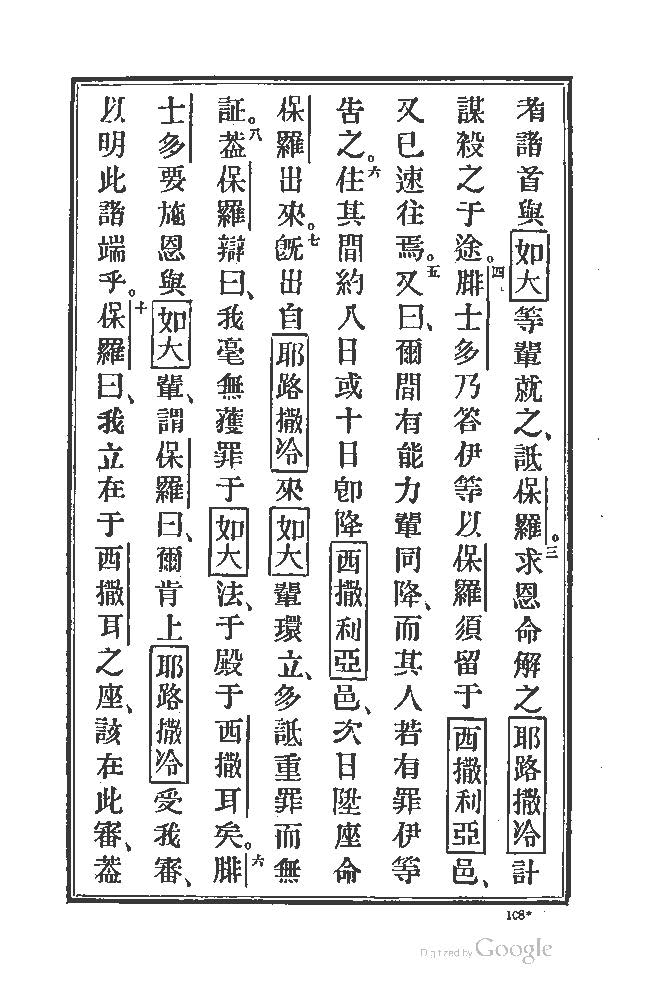 者諸首與如大等輩就之、詆保羅。三求恩命解之耶路撒冷計
謀殺之于途。四腓士多乃答伊等以保羅須留于西撒利亞邑、
又已速往焉。五又曰、爾間有能力輩同降、而其人若有罪伊等
告之。六住其間約八日或十日卽降西撒利亞邑、次日陞座命
保羅出來。七旣出自耶路撒冷來如大輩環立、多詆重罪而無
証。八葢保羅辯曰、我毫無獲罪于如大法、于殿于西撒耳矣。六腓
士多要施恩與如大輩、謂保羅曰、爾肯上耶路撒冷受我審、
以明此諸端乎。十保羅曰、我立在于西撒耳之座、該在此審、葢
108*
Digitized by Google